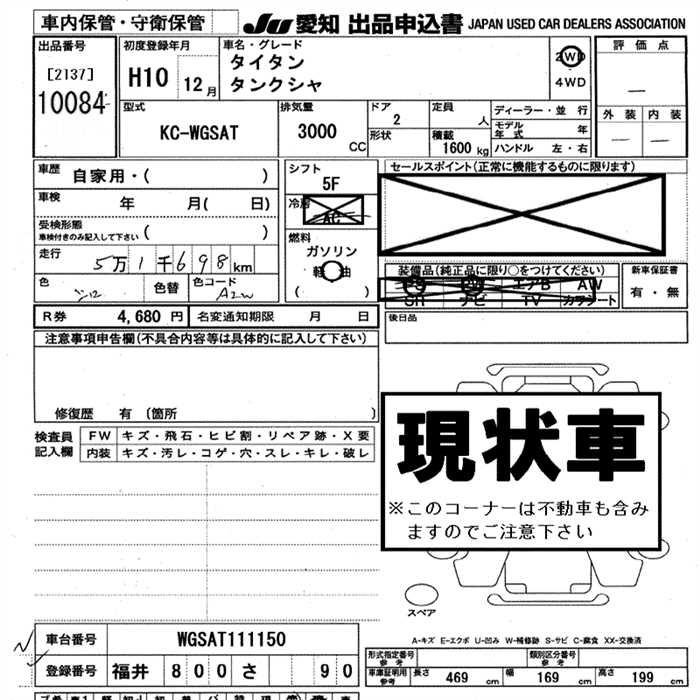 車内保管・守衛保管
JU 愛知 出品申込書 JAPAN USED CAR DEALERS ASSOCIATION
出品番号
[2137]
10084
初度登録年月
H10 12月
車名・グレード
タイタン
タンクシャ
2WD
4WD
評価点
—
外装 内装
— —
型式
KC-WGSAT
排気量
3000 CC
ドア
2
形状
定員
人
積載
1600 kg
ディーラー・並行
モデル年式 年
ハンドル 左・右
車歴 自家用・( )
車検 年 月( 日)
受検形態
車検付きのみ記入して下さい ( )
走行 5万1千698km
色 色替 色コード A2W
R券 4,680円 名変通知期限 月 日
シフト
5F
冷房
AC
燃料
ガソリン
軽油
( )
セールスポイント(正常に機能するものに限ります)
装備品(純正品に限り○をつけてください)
PS PW エアB AW
SR ナビ TV カワシート
新車保証書
有・無
後日品
注意事項申告欄(不具合内容等は具体的に記入して下さい)
修復歴 有 (箇所 )
検査員記入欄
FW キズ・飛石・ヒビ割・リペア跡・X要
内装 キズ・汚レ・コゲ・穴・スレ・キレ・破レ
現状車
※このコーナーは不動車も含み
ますのでご注意下さい
スペア
A-キズ E-エクボ U-凹み W-補修跡 S-サビ C-腐食 XX-交換済
車台番号 WGSAT111150
登録番号 福井 800 さ 90
形式指定番号
参考
類別区分番号
参考
車庫証明用
参考
長さ 469 cm 幅 169 cm 高さ 199 cm